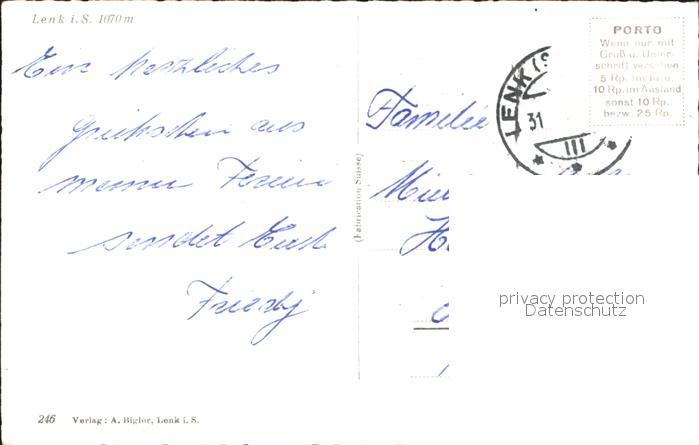 Lenk i. S. 1070 m
Ein herzliches
aus
meinen Ferien
sendet Euch
PORTO
Wenn nur mit
Gruß u. Unter-
schrift versehen
5 Rp. im In. u.
10 Rp. im Ausland
sonst 10 Rp.
bezw. 25 Rp.
LENK (S
31
III
Familie
(Fabrication Suisse)
privacy protection
Datenschutz
246 Verlag: A. Bigler, Lenk i. S.